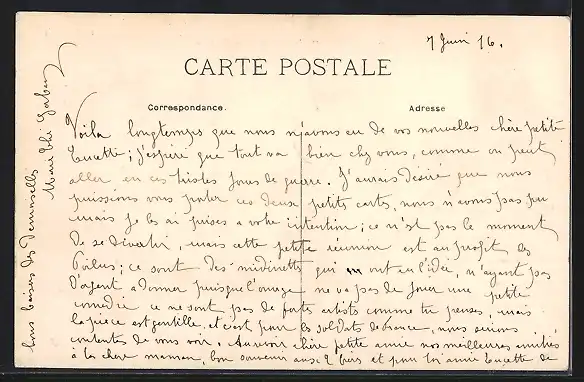 7 Juin 16.
CARTE POSTALE
Correspondance.
Adresse
Voila longtemps que nous n'avons eu de vos nouvelles chère petite
Lucette; j'espère que tout va bien chez vous, comme on peut
aller en ces tristes jours de guerre. J'aurais désiré que nous
puissions vous porter ces deux petits cartes, nous n'avons pas pu
mais je les ai prises a votre intention; ce n'est pas le moment
de se divertir, mais cette petite réunion est au profit des
Poilus; ce sont des midinettes qui en ont eu l'idée, n'ayant pas
d'argent a donner puisque l'ouvrage ne va pas de jouer une petite
comedie ce ne sont pas de fortes artistes comme tu penses, mais
la pièce est gentille, et c'est pour les soldats de france, nous serions
contentes de vous voir. Au revoir chère petite amie nos meilleures amitiés
à ta chère maman, bon souvenir aux 2 et pour toi amie Lucette de
bons baisers des Demoiselles
Marie